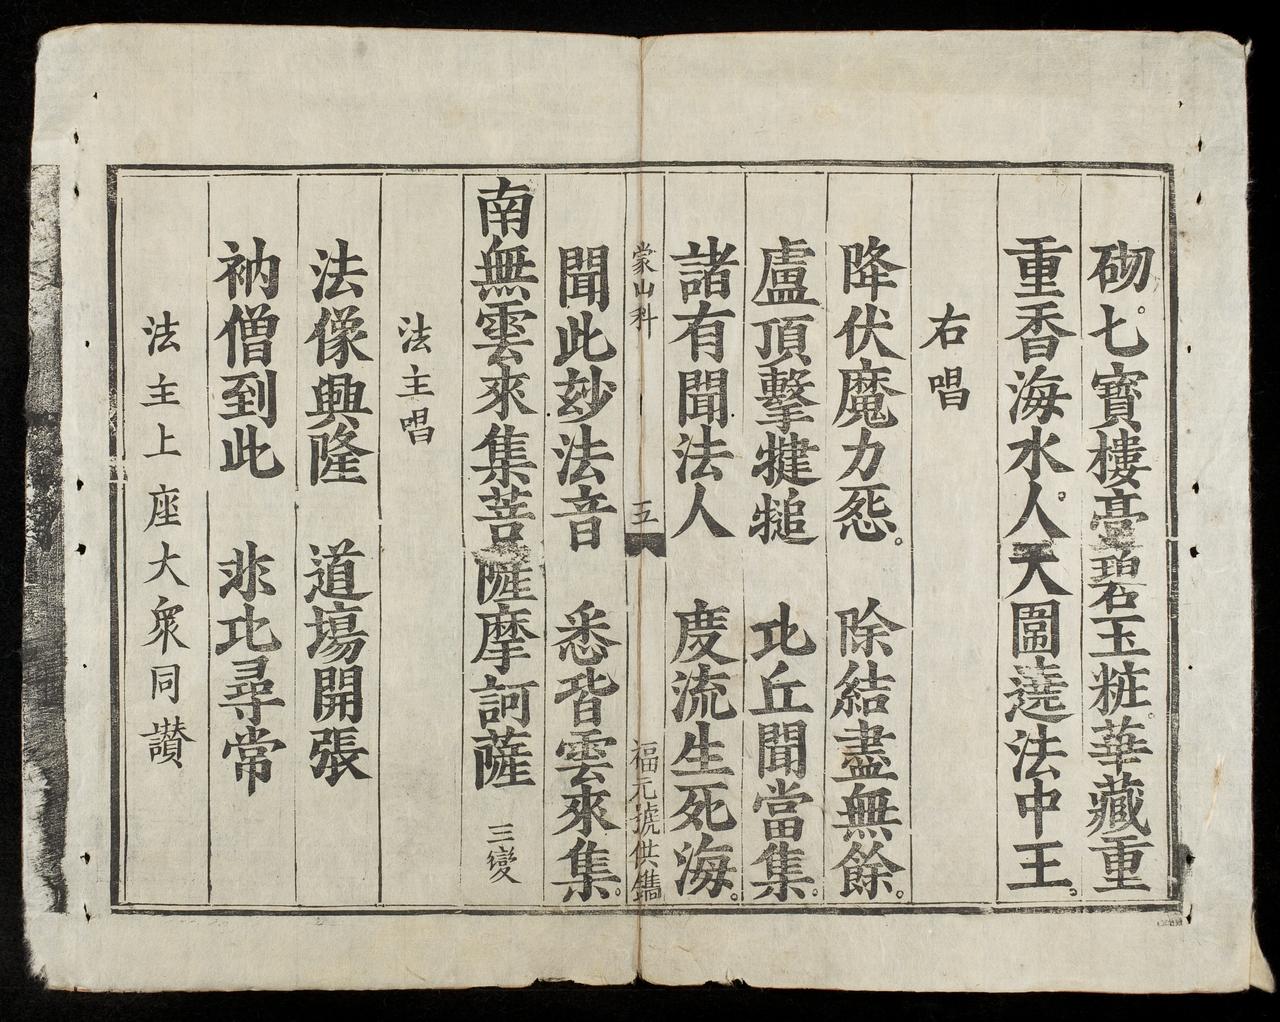 砌。七寶樓臺碧玉粧。華藏重
重香海水。人天圍遶法中王。
右唱
降伏魔力怨。 除結盡無餘。
盧頂擊犍槌 比丘聞當集。
諸有聞法人 度流生死海。
蒙山科 五 福元號供鐫
聞此玅法音 悉皆雲來集。
南無雲來集菩薩摩訶薩 三變
法主唱
法像興隆 道場開張
衲僧到此 非比尋常
法主上座大眾同讃